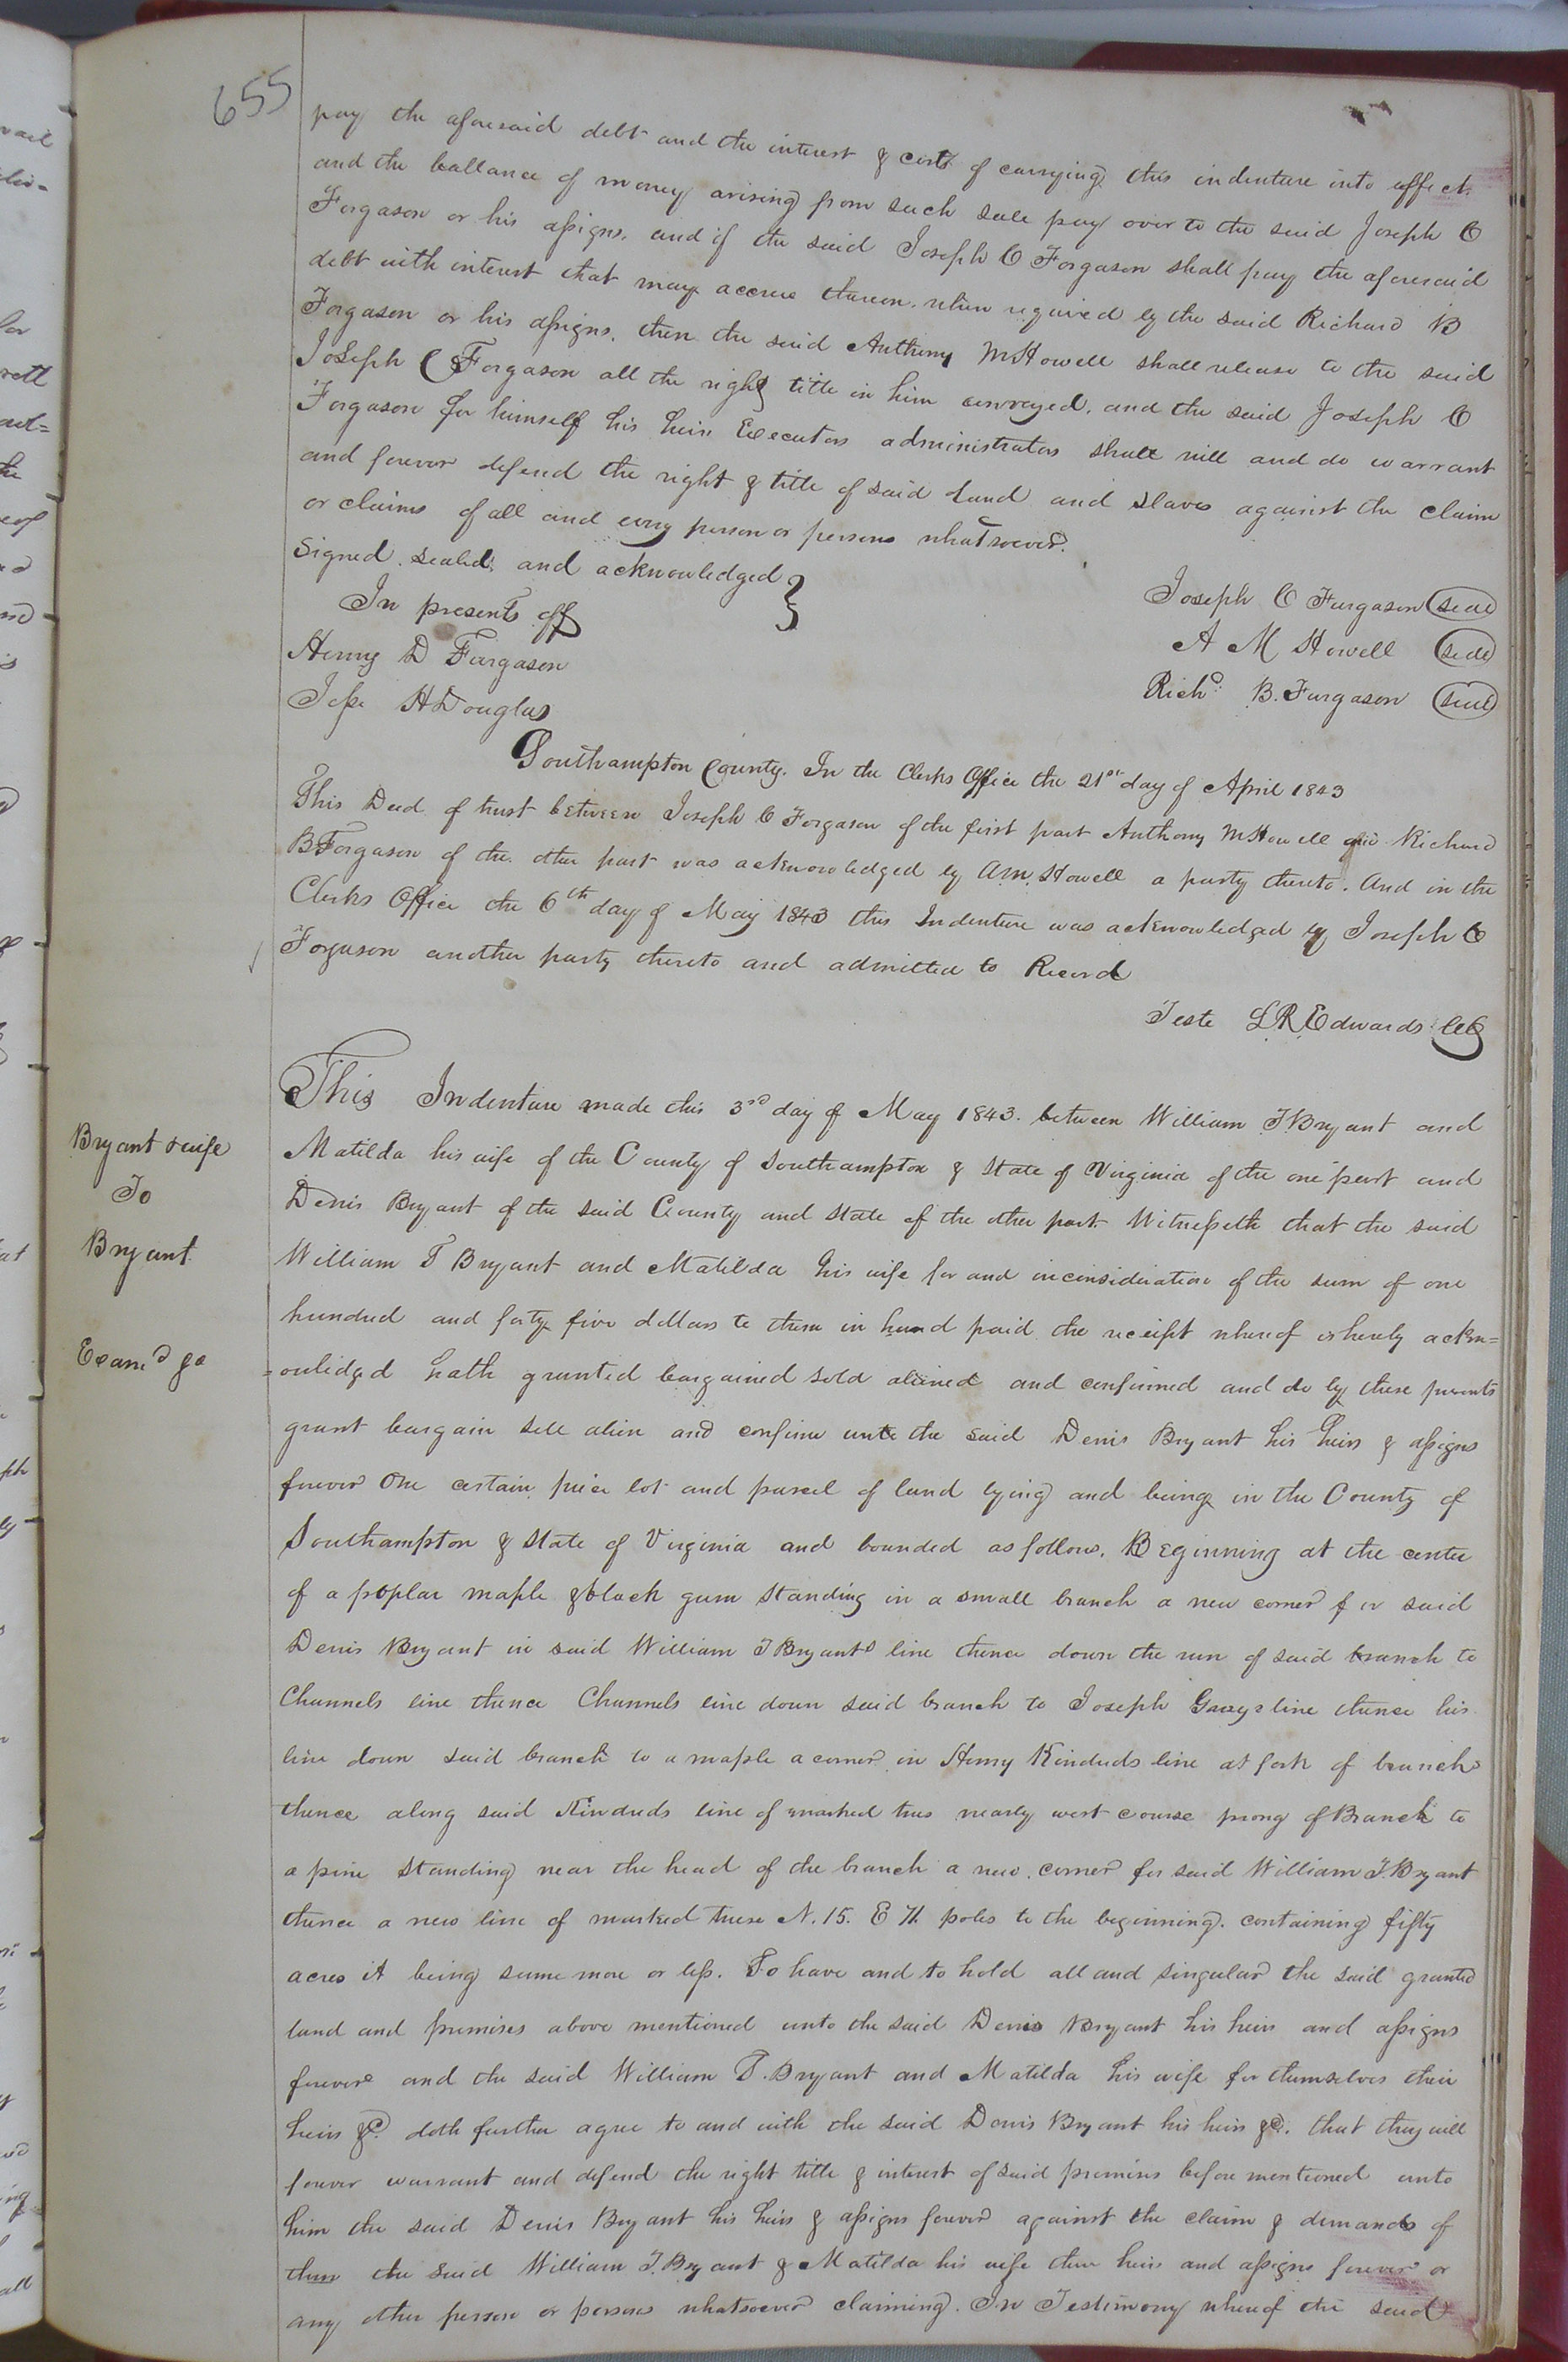 655
pay the aforesaid debt and the interest & cost of carrying this indenture into effect.
and the ballance of money arising from such sale pay over to the said Joseph C
Forgason or his assigns. and if the said Joseph C Forgason shall pay the aforesaid
debt with interest that may accrue thereon. when required by the said Richard B
Forgason or his assigns. then the said Anthony M Howell shall release to the said
Joseph C Forgason all the right title in him conveyed. and the said Joseph C
Forgason for himself his heirs Executors administrators shall will and do warrant
and forever defend the right & title of said land and slaves against the claim
or claims of all and every person or persons whatsoever.
Signed. sealed. and acknowledged }
In presents off
Joseph C Furgason (seal)
Henry D Furgason
A M Howell (seal)
Jesse H Douglas
Richd. B. Furgason (seal)
Southampton County. In the Clerks Office the 21st day of April 1843
This Deed of trust between Joseph C Forgason of the first part Anthony M Howell and Richard
B Forgason of the other part was acknowledged by A.M. Howell a party thereto. And in the
Clerks Office the 6th day of May 1843 this Indenture was acknowledged by Joseph C
Forguson another party thereto and admitted to Record
Teste L R Edwards CC
This Indenture made this 3rd day of May 1843. between William T Bryant and
Bryant & wife
Matilda his wife of the County of Southampton & State of Virginia of the one part and
To
Denis Bryant of the said County and State of the other part Witnesseth that the said
Bryant.
William T Bryant and Matilda his wife for and inconsideration of the sum of one
hundred and forty five dollars to them in hand paid the receipt whereof is hereby ackn=
Examd
=owlidged hath granted bargained sold aliened and confirmed and do by these presents
grant bargain sell alien and confirm unto the said Denis Bryant his heirs & assigns
forever One certain piece lot and parcel of land lying and being in the County of
Southampton & State of Virginia and bounded as follows. Beginning at the center
of a poplar maple & black gum standing in a small branch a new corner for said
Denis Bryant in said William T Bryants line thence down the run of said branch to
Channels line thence Channels line down said branch to Joseph Grays line thence his
line down said branch to a maple a corner in Henry Kindreds line at fork of branch
thence along said Kindreds line of marked trees nearly west course prong of Branch to
a pine standing near the head of the branch a new corner for said William T. Bryant
thence a new line of marked trees N. 15. E 71. poles to the beginning. containing fifty
acres it being same more or less. To have and to hold all and singular the said granted
land and premises above mentioned unto the said Denis Bryant his heirs and assigns
forever and the said William T. Bryant and Matilda his wife for themselves their
heirs &c. doth further agree to and with the said Denis Bryant his heirs &c. that they will
forever warrant and defend the right title & interest of said premises before mentioned unto
him the said Denis Bryant his heirs & assigns forever against the claim & demands of
them the said William T. Bryant & Matilda his wife their heirs and assigns forever or
any other person or persons whatsoever claiming. In Testimony whereof the said